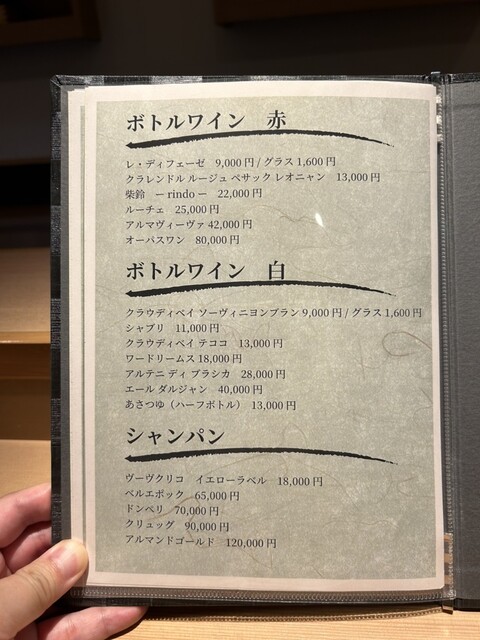 ボトルワイン 赤
レ・ディフェーゼ 9,000円 / グラス 1,600円
クラレンドル ルージュ ペサック レオニャン 13,000円
柴鈴 ー rindo ー 22,000円
ルーチェ 25,000円
アルマヴィーヴァ 42,000円
オーパスワン 80,000円
ボトルワイン 白
クラウディベイ ソーヴィニヨンブラン 9,000円 / グラス 1,600円
シャブリ 11,000円
クラウディベイ テココ 13,000円
ワードリームス 18,000円
アルテニ ディ ブラシカ 28,000円
エール ダルジャン 40,000円
あさつゆ(ハーフボトル) 13,000円
シャンパン
ヴーヴクリコ イエローラベル 18,000円
ベルエポック 65,000円
ドンペリ 70,000円
クリュッグ 90,000円
アルマンドゴールド 120,000円